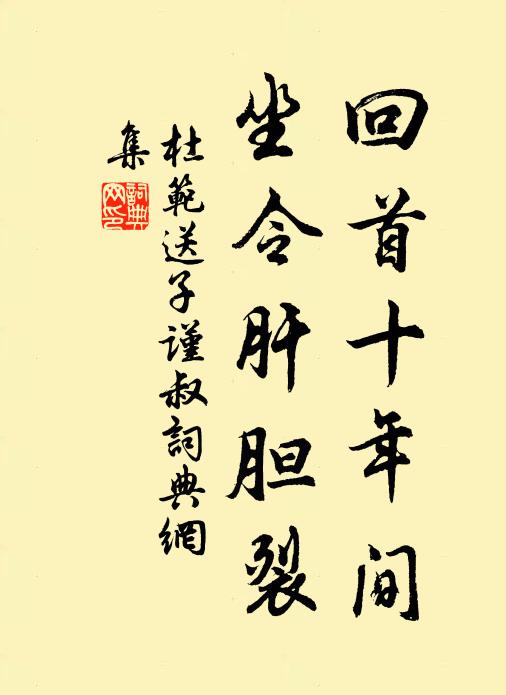 回首十年间
坐令肝胆裂
杜範送子谨叔詞典網
集
詞典
网印